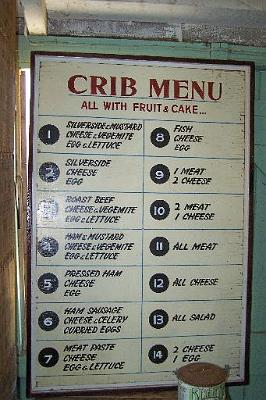 CRIB MENU
ALL WITH FRUIT & CAKE...
1 SILVERSIDE & MUSTARD
CHEESE & VEGEMITE
EGG & LETTUCE
2 SILVERSIDE
CHEESE
EGG
3 ROAST BEEF
CHEESE & VEGEMITE
EGG & LETTUCE
4 HAM & MUSTARD
CHEESE & VEGEMITE
EGG & LETTUCE
5 PRESSED HAM
CHEESE
EGG
6 HAM SAUSAGE
CHEESE & CELERY
CURRIED EGGS
7 MEAT PASTE
CHEESE
EGG & LETTUCE
8 FISH
CHEESE
EGG
9 1 MEAT
2 CHEESE
10 2 MEAT
1 CHEESE
11 ALL MEAT
12 ALL CHEESE
13 ALL SALAD
14 2 CHEESE
1 EGG